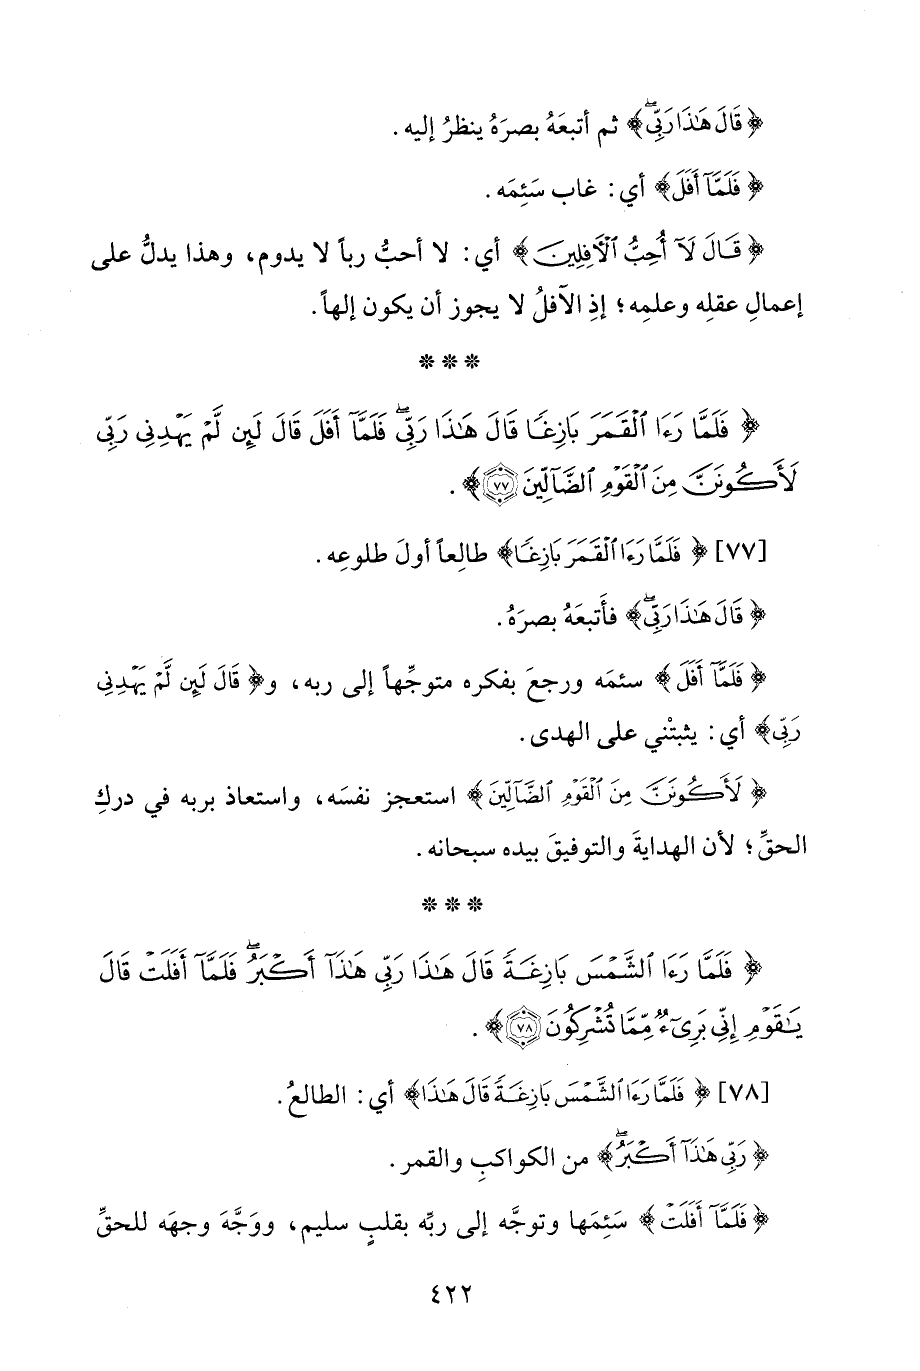 ﴿ قَالَ هَٰذَا رَبِّيۖ ﴾ ثم أتبعَهُ بصرَهُ ينظرُ إليه .
﴿ فَلَمَّآ أَفَلَ ﴾ أي : غاب سَئِمَه .
﴿ قَالَ لَآ أُحِبُّ ٱلْأٓفِلِينَ ﴾ أي : لا أحبُّ رباً لا يدوم، وهذا يدلُّ على
إعمالِ عقلِه وعلمِه؛ إذِ الآفلُ لا يجوز أن يكون إلهاً.
*** 
﴿ فَلَمَّا رَءَا ٱلْقَمَرَ بَازِغًا قَالَ هَٰذَا رَبِّيۖ فَلَمَّآ أَفَلَ قَالَ لَئِن لَّمْ يَهْدِنِي رَبِّي
لَأَكُونَنَّ مِنَ ٱلْقَوْمِ ٱلضَّآلِّينَ ٧٧ ﴾ .
[٧٧] ﴿ فَلَمَّا رَءَا ٱلْقَمَرَ بَازِغًا ﴾ طالِعاً أولَ طلوعِه .
﴿ قَالَ هَٰذَا رَبِّيۖ ﴾ فأَتبعَهُ بصرَهُ .
﴿ فَلَمَّآ أَفَلَ ﴾ سئمَه ورجعَ بفكره متوجِّهاً إلى ربه، و﴿ قَالَ لَئِن لَّمْ يَهْدِنِي
رَبِّي ﴾ أي : يثبتْني على الهدى .
﴿ لَأَكُونَنَّ مِنَ ٱلْقَوْمِ ٱلضَّآلِّينَ ﴾ استعجز نفسَه، واستعاذ بربه في دركِ
الحقِّ؛ لأن الهدايةَ والتوفيقَ بيده سبحانه .
***
﴿ فَلَمَّا رَءَا ٱلشَّمْسَ بَازِغَةً قَالَ هَٰذَا رَبِّي هَٰذَآ أَكْبَرُۖ فَلَمَّآ أَفَلَتْ قَالَ
يَٰقَوْمِ إِنِّي بَرِيٓءٌ مِّمَّا تُشْرِكُونَ ٧٨ ﴾ .
[٧٨] ﴿ فَلَمَّا رَءَا ٱلشَّمْسَ بَازِغَةً قَالَ هَٰذَا ﴾ أي : الطالعُ .
﴿ رَبِّي هَٰذَآ أَكْبَرُۖ ﴾ من الكواكبِ والقمر .
﴿ فَلَمَّآ أَفَلَتْ ﴾ سَئِمَها وتوجَّه إلى ربِّه بقلبٍ سليم، ووَجَّهَ وجهَه للحقِّ
٤٢٢